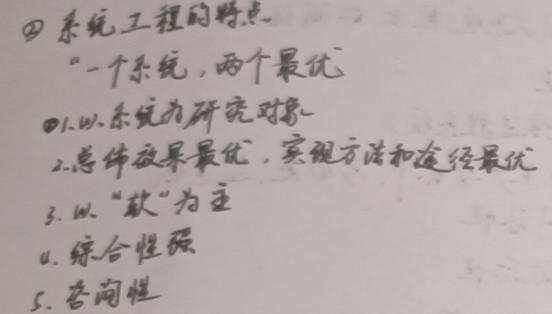 ② 系统工程的特点
“一个系统，两个最优
1. 以系统为研究对象
2. 总体效果最优，实现方法和途径最优
3. 以“软”为主
4. 综合性强
5. 咨询性